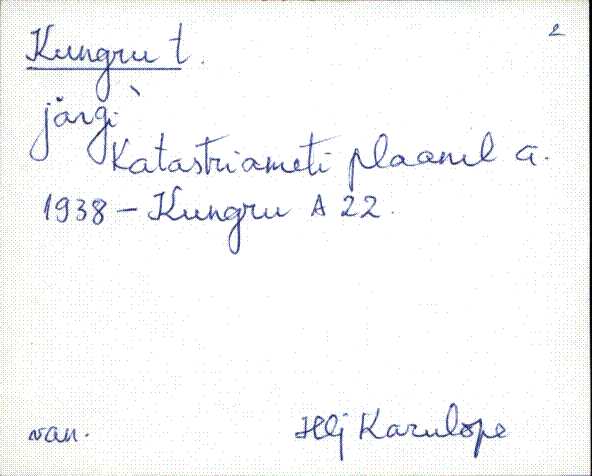 Kungru t.
2
järgi
Katastriameti plaanil a.
1938 – Kungru A 22.
van.
Hlj Karulope